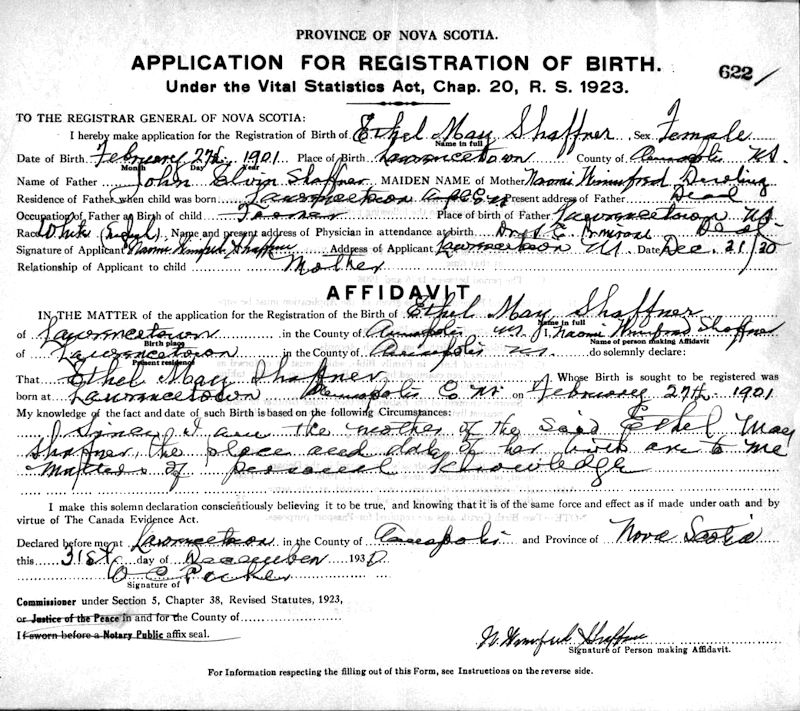 PROVINCE OF NOVA SCOTIA.
APPLICATION FOR REGISTRATION OF BIRTH.
622
Under the Vital Statistics Act, Chap. 20, R. S. 1923.
TO THE REGISTRAR GENERAL OF NOVA SCOTIA:
I hereby make application for the Registration of Birth of Ethel May Shaffner Sex Female
Name in full
Date of Birth February 27th, 1901 Place of Birth Lawrencetown County of Annapolis NS.
Month Day Year
Name of Father John Elvin Shaffner MAIDEN NAME of Mother Naomi Winnifred Dowling
Residence of Father when child was born Lawrencetown Present address of Father Dead
Occupation of Father at Birth of child Place of birth of Father Lawrencetown NS
Race White Name and present address of Physician in attendance at birth Dead
Signature of Applicant Naomi Winifred Shaffner Address of Applicant Lawrencetown NS Date Dec. 31/30
Relationship of Applicant to child Mother
AFFIDAVIT
IN THE MATTER of the application for the Registration of the Birth of Ethel May Shaffner
Name in full
of Lawrencetown in the County of Annapolis NS I, Naomi Winnifred Shaffner
Birth place Name of person making Affidavit
of Lawrencetown in the County of Annapolis NS. do solemnly declare:
Present residence
That Ethel May Shaffner Whose Birth is sought to be registered was
born at Lawrencetown Annapolis Co NS on February 27th 1901
My knowledge of the fact and date of such Birth is based on the following Circumstances:
Since I am the mother of the said Ethel May
Shaffner, the place and date of her birth are to me
matters of personal knowledge
I make this solemn declaration conscientiously believing it to be true, and knowing that it is of the same force and effect as if made under oath and by
virtue of The Canada Evidence Act.
Declared before me at Lawrencetown in the County of Annapolis and Province of Nova Scotia
this 31st day of December 1930
Signature of
Commissioner under Section 5, Chapter 38, Revised Statutes, 1923,
or Justice of the Peace in and for the County of
If sworn before a Notary Public affix seal.
N. Winnifred Shaffner
Signature of Person making Affidavit.
For Information respecting the filling out of this Form, see Instructions on the reverse side.